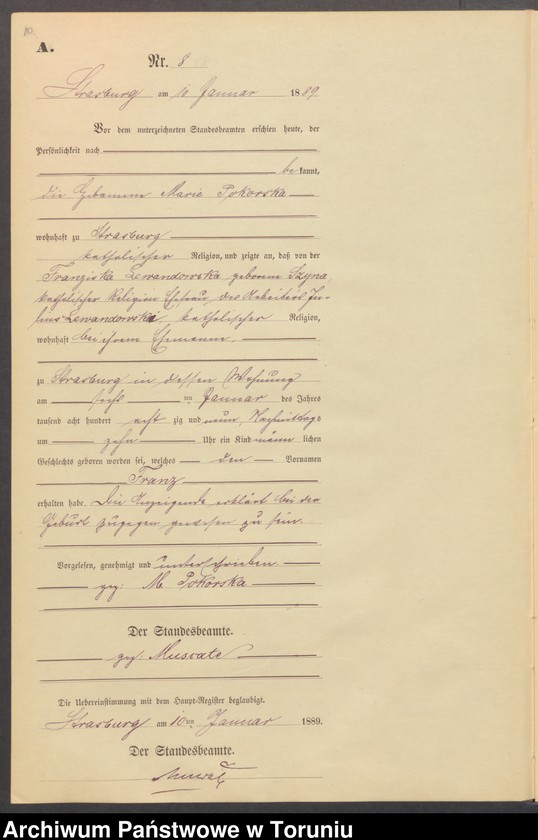 10.
A.
Nr. 8
Strasburg am 10 Januar 1889
Vor dem unterzeichneten Standesbeamten erschien heute, der
Persönlichkeit nach
be kannt,
die Hebamme Marie Pokorska
wohnhaft zu Strasburg
katholischer Religion, und zeigte an, daß von der
Franziska Lewandowska geborene Szyna
katholischer Religion Ehefrau des Arbeiters Ju-
lius Lewandowski, katholischer Religion,
wohnhaft bei ihrem Ehemann
zu Strasburg in dessen Wohnung
am sechsten Januar des Jahres
tausend acht hundert acht zig und neun, Nachmittags
um zehn Uhr ein Kind männ lichen
Geschlechts geboren worden sei, welches den Vornamen
Franz
erhalten habe. Die Anzeigende erklärt bei der
Geburt zugegen gewesen zu sein.
Vorgelesen, genehmigt und unterschrieben
gez. M. Pokorska
Der Standesbeamte.
gez. Muscate
Die Uebereinstimmung mit dem Haupt-Register beglaubigt.
Strasburg am 10ten Januar 1889.
Der Standesbeamte.
Archiwum Państwowe w Toruniu